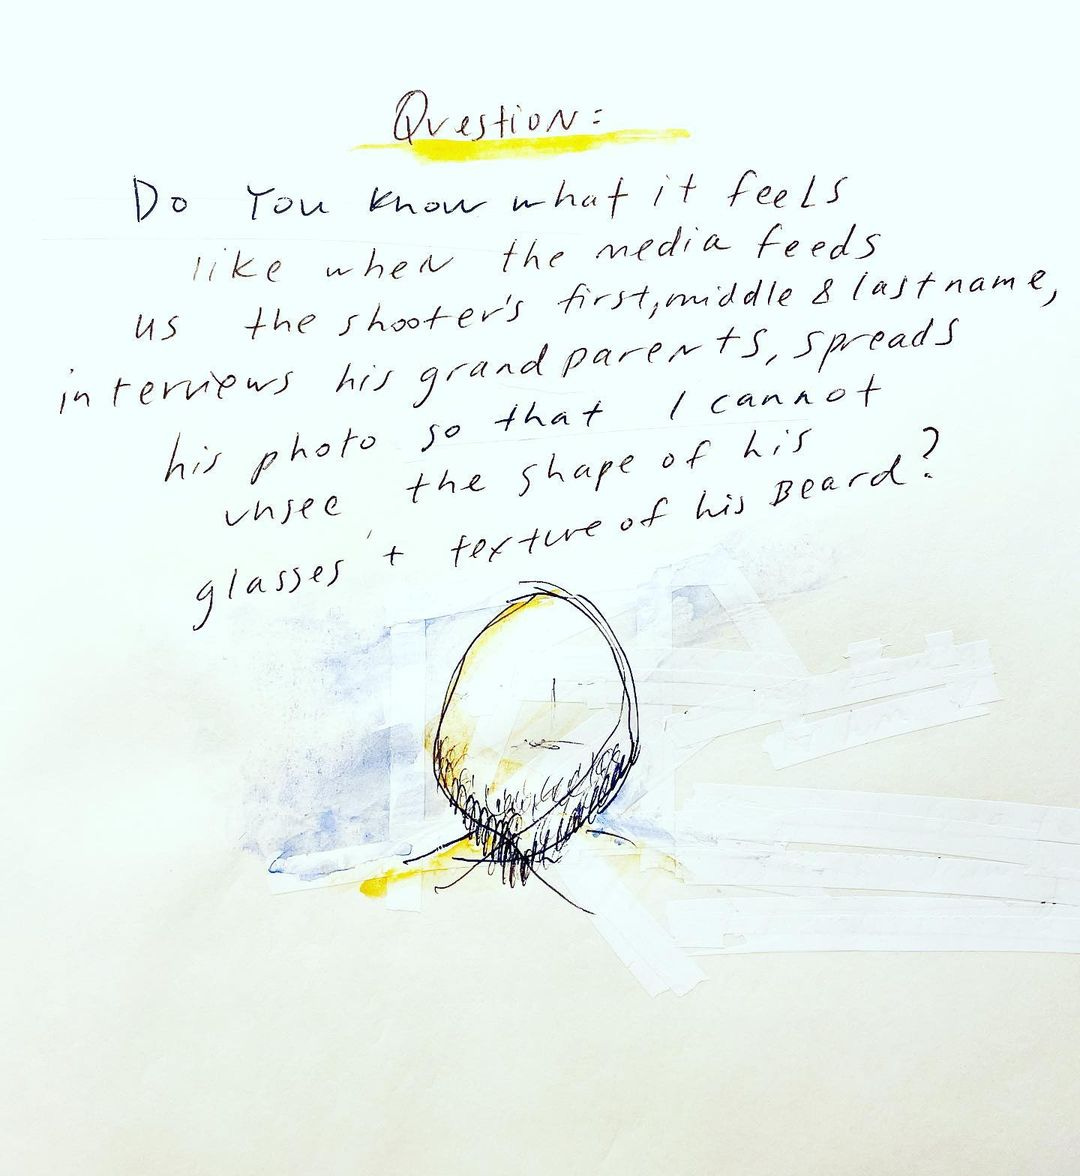 Question:
Do You know what it feels
like when the media feeds
us the shooter's first, middle & last name,
interviews his grandparents, spreads
his photo so that I cannot
unsee the shape of his
glasses + texture of his Beard?